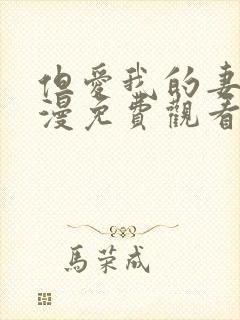 但愛我的妻
漫免費觀看
馬荣成